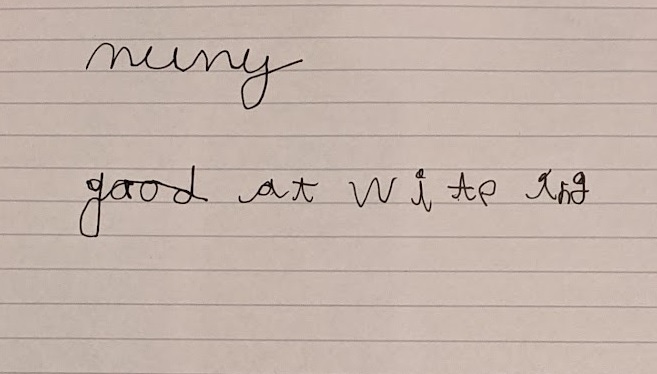 nuny
good at Wite ing